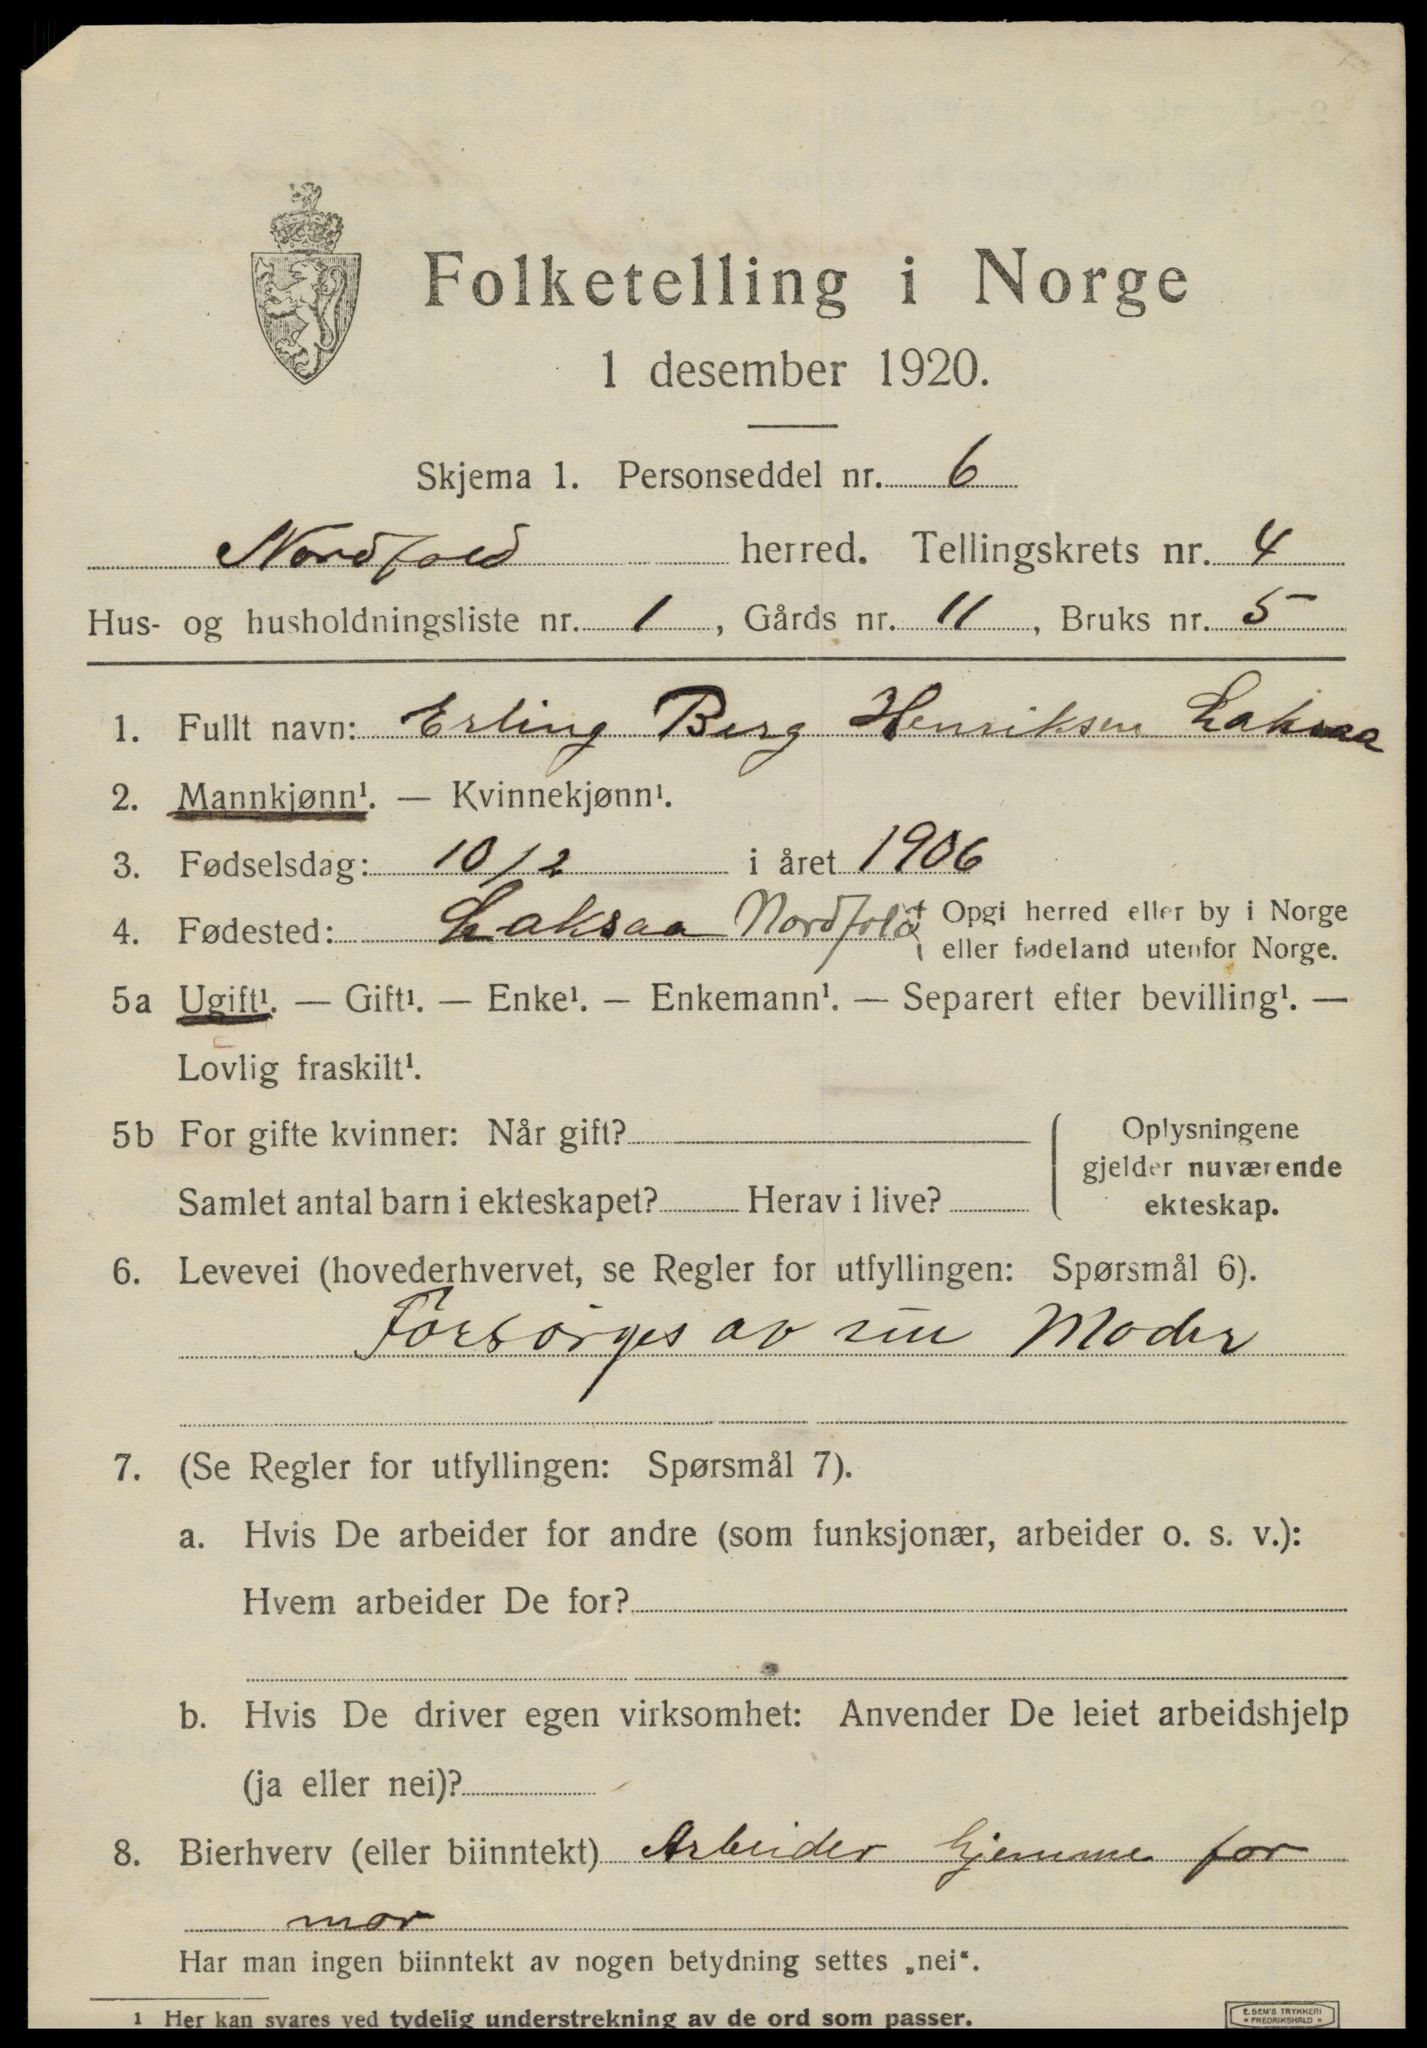 Folketelling i Norge
1 desember 1920.
Skjema 1. Personseddel nr. 6
Nordfold herred. Tellingskrets nr. 4
Hus- og husholdningsliste nr. 1, Gårds nr. 11, Bruks nr. 5
1. Fullt navn: Erling Berg Henriksen Laksaa
2. Mannkjønn¹. — Kvinnekjønn¹.
3. Fødselsdag: 10/2 i året 1906
4. Fødested: Laksaa Nordfold { Opgi herred eller by i Norge
eller fødeland utenfor Norge.
5a Ugift¹. — Gift¹. — Enke¹. — Enkemann¹. — Separert efter bevilling¹. —
Lovlig fraskilt¹.
5b For gifte kvinner: Når gift?
Samlet antal barn i ekteskapet? Herav i live?
Oplysningene
gjelder nuværende
ekteskap.
6. Levevei (hovederhvervet, se Regler for utfyllingen: Spørsmål 6).
Forsørges av sin Moder
7. (Se Regler for utfyllingen: Spørsmål 7).
a. Hvis De arbeider for andre (som funksjonær, arbeider o. s. v.):
Hvem arbeider De for?
b. Hvis De driver egen virksomhet: Anvender De leiet arbeidshjelp
(ja eller nei)?
8. Bierhverv (eller biinntekt) Arbeider hjemme for
mor
Har man ingen biinntekt av nogen betydning settes „nei“.
1 Her kan svares ved tydelig understrekning av de ord som passer.
E. SEM'S TRYKKERI
* FREDRIKSHALD *